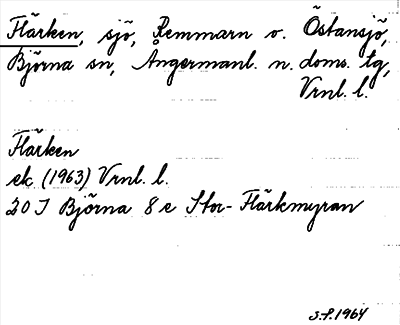 Flärken, sjö, Remmarn o. Östansjö,
Björna sn, Ångermanl. n. doms. tg,
Vrnl. l.
Flärken
ek (1963) Vrnl. l.
20 I Björna 8 e Stor-Flärkmyran
S.P. 1964